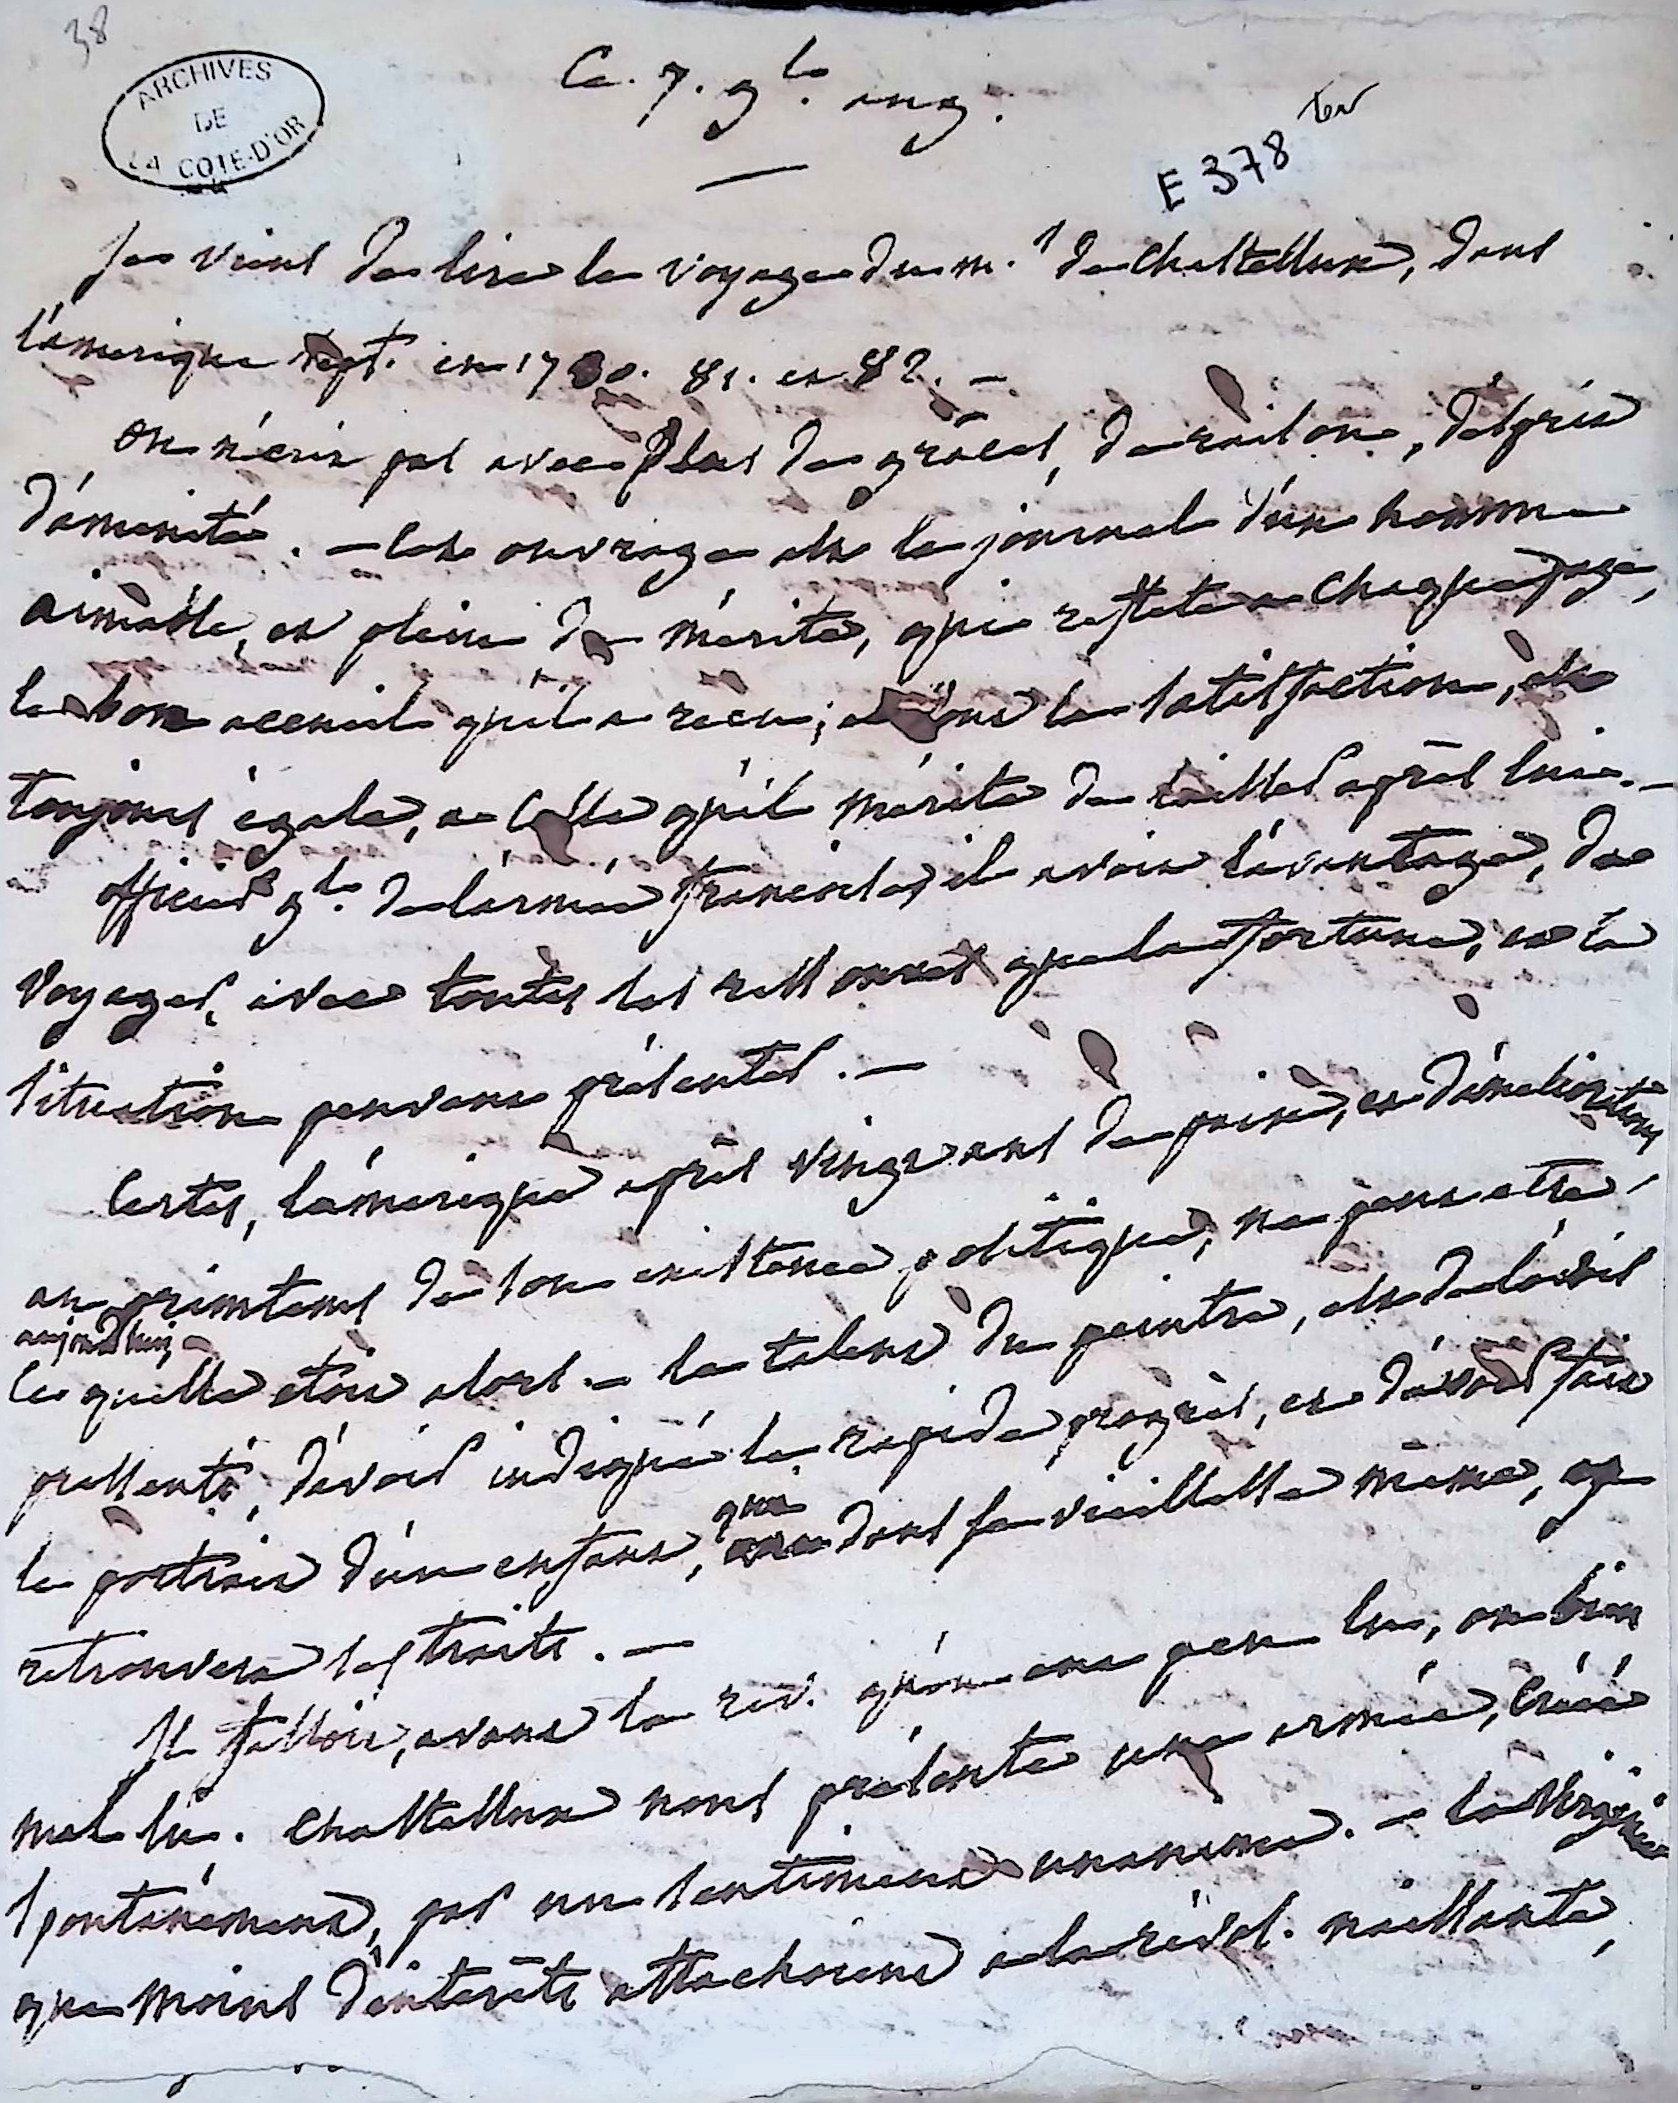 38
ARCHIVES
DE
LA COTE-D'OR
Ce. 7. g.le aug.
E 378 ter
Je viens de lire le voyage du m.is de Chastellux, dans
l'amerique sept. en 1780. 81. et 82. —
on n'écrit pas avec plus de grâces, de raison, d'esprit
d'aménité. — Cet ouvrage est le journal d'un homme
aimable, et plein de mérite, qui reflete a chaque page,
le bon acceuil qu'il a recu; et dont la satisfaction, est
toujours égale, a celle qu'il mérite de laisser après lui. —
officier g.l de l'armée francaise, il avoit l'avantage, de
voyager, avec toutes les ressources que la fortune, et la
situation peuvent présenter. —
Certes, l'amerique après vingt ans de paix, et d'ameliorations
au printems de son existence politique, ne peut etre
aujourdhui
ce quelle étoit alors. — le talent du peintre, est de l'avoir
pressenti, d'avoir indiqué le rapide progrès, et d'avoir fait
le portrait d'un enfant, qui dans sa vieillesse même, on
retrouvera les traits. —
Il falloit, avant la rev. qu'on eut peu lu, ou bien
mal lu. Chastellux nous présente une armée, créée
spontanément, par un sentiment unanime. — la Virginie
que moins d'interêts attachoient a la révol. naissante,